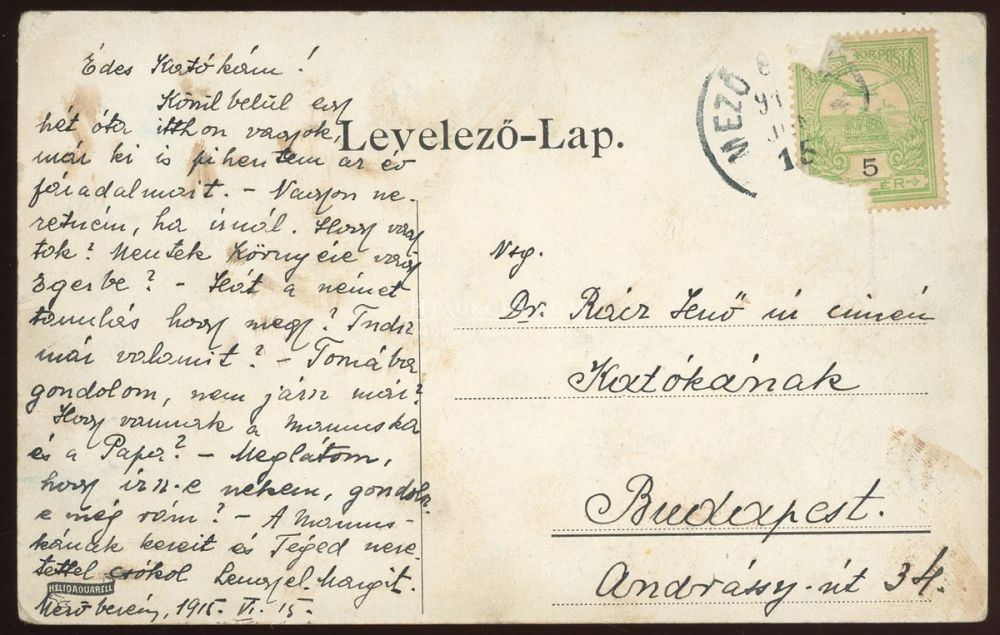 Édes Katókám!
Körülbelül egy
hét óta itthon vagyok,
már ki is pihentem az év
fáradalmait. – Nagyon sze-
retném, ha írnál. Hogy vagy-
tok? Mentek Környére vagy
Egerbe? – Hát a német
tanulás hogy megy? Tudsz
már valamit? – Tornába
gondolom, nem jársz már?
Hogy vannak a Mamuska
és a Papa? – Meglátom,
hogy írsz-e nekem, gondolsz-
e még rám? – A Mamus-
kának kezeit és Téged szere-
tettel csókol Lengyel Margit.
Mezőberény, 1915. VI. 15.
HELIOAQUARELL
Levelező-Lap.
MEZŐ
15
KIR. POSTA
5
ÉR
Nsg.
Dr. Rácz Jenő úr címén
Katókának
Budapest.
Andrássy-út 34.